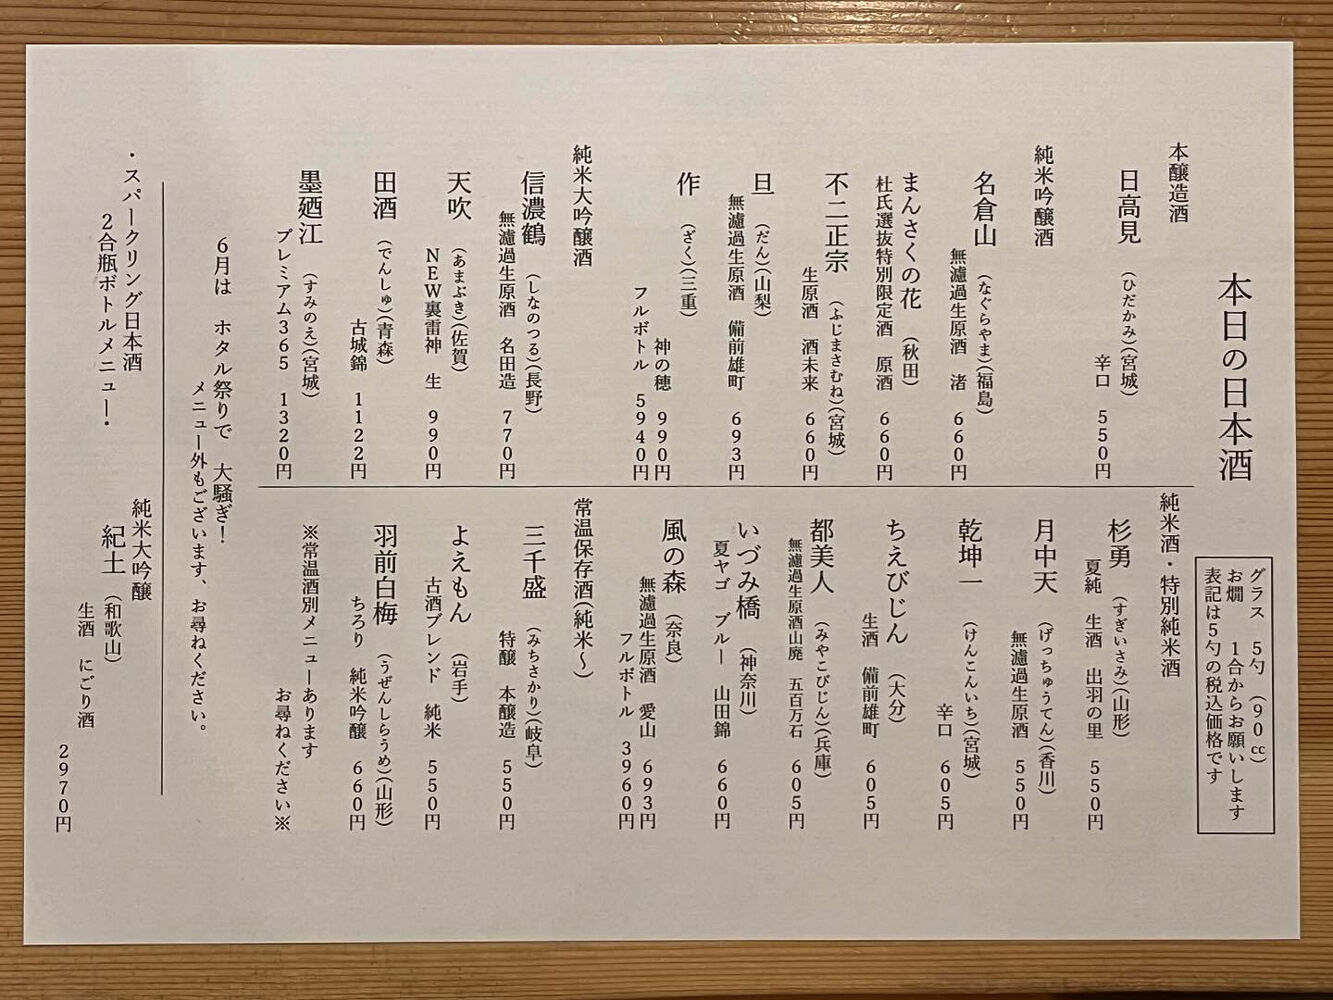 本日の日本酒
グラス　５勺　（９０㏄）
お燗　１合からお願いします
表記は５勺の税込価格です
本醸造酒
日高見　（ひだかみ）（宮城）
辛口　５５０円
純米吟醸酒
名倉山　（なぐらやま）（福島）
無濾過生原酒　渚　６６０円
まんさくの花　（秋田）
杜氏選抜特別限定酒　原酒　６６０円
不二正宗　（ふじまさむね）（宮城）
生原酒　酒未来　６６０円
旦　（だん）（山梨）
無濾過生原酒　備前雄町　６９３円
作　（ざく）（三重）
神の穂　９９０円
フルボトル　５９４０円
純米大吟醸酒
信濃鶴　（しなのつる）（長野）
無濾過生原酒　名田造　７７０円
天吹　（あまぶき）（佐賀）
ＮＥＷ裏雷神　生　９９０円
田酒　（でんしゅ）（青森）
古城錦　１１２２円
墨廼江　（すみのえ）（宮城）
プレミアム３６５　１３２０円
純米酒・特別純米酒
杉勇　（すぎいさみ）（山形）
夏純　生酒　出羽の里　５５０円
月中天　（げっちゅうてん）（香川）
無濾過生原酒　５５０円
乾坤一　（けんこんいち）（宮城）
辛口　６０５円
ちえびじん　（大分）
生酒　備前雄町　６０５円
都美人　（みやこびじん）（兵庫）
無濾過生原酒山廃　五百万石　６０５円
いづみ橋　（神奈川）
夏ヤゴ　ブルー　山田錦　６６０円
風の森　（奈良）
無濾過生原酒　愛山　６９３円
フルボトル　３９６０円
常温保存酒（純米～）
三千盛　（みちさかり）（岐阜）
特醸　本醸造　５５０円
よえもん　（岩手）
古酒ブレンド　純米　５５０円
羽前白梅　（うぜんしらうめ）（山形）
ちろり　純米吟醸　６６０円
※常温酒別メニューあります
お尋ねください※
６月は　ホタル祭りで　大騒ぎ！
メニュー外もございます、お尋ねください。
・スパークリング日本酒
２合瓶ボトルメニュー・
純米大吟醸
紀土　（和歌山）
生酒　にごり酒
２９７０円